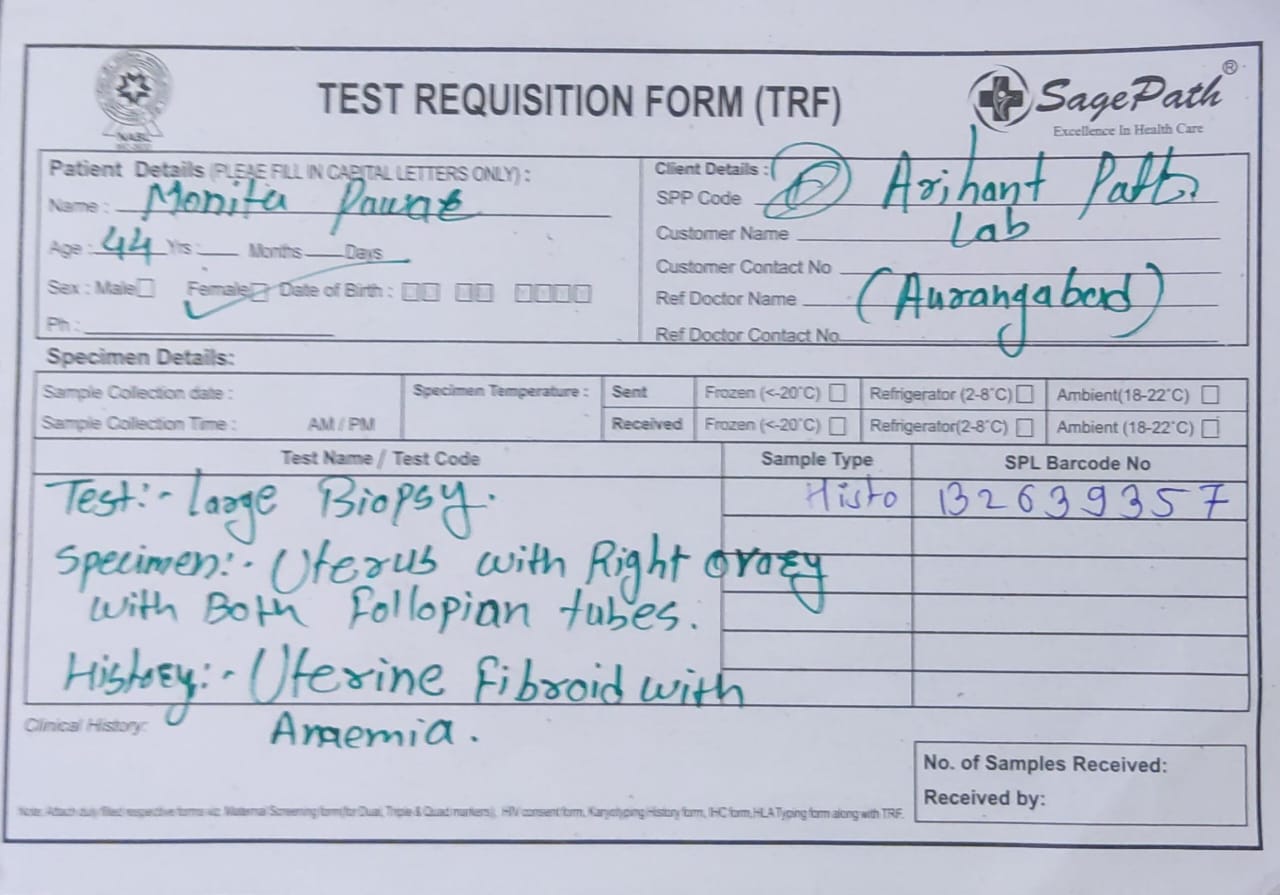 NABL
TEST REQUISITION FORM (TRF)
SagePath®
Excellence In Health Care
Patient Details (PLEAE FILL IN CAPITAL LETTERS ONLY) :
Name : Monita Pawar
Age : 44 Yrs : Months Days
Sex : Male Female Date of Birth :
Ph :
Client Details :
SPP Code Arihant Path
Customer Name Lab
Customer Contact No
Ref Doctor Name (Aurangabad)
Ref Doctor Contact No
Specimen Details:
Sample Collection date :
Sample Collection Time : AM / PM
Specimen Temperature :
Sent Frozen (<-20°C) Refrigerator (2-8°C) Ambient(18-22°C)
Received Frozen (<-20°C) Refrigerator(2-8°C) Ambient (18-22°C)
Test Name / Test Code Sample Type SPL Barcode No
Test:- large Biopsy. Histo 132639357
Specimen:- Uterus with Right ovary
with Both Follopian tubes.
History:- Uterine Fibroid with
Anaemia.
Clinical History:
No. of Samples Received:
Received by:
Note: Attach duly filled respective forms viz. Maternal Screening form(for Dual, Triple & Quad markers), HIV consent form, Karyotyping History form, IHC form, HLA Typing form along with TRF.